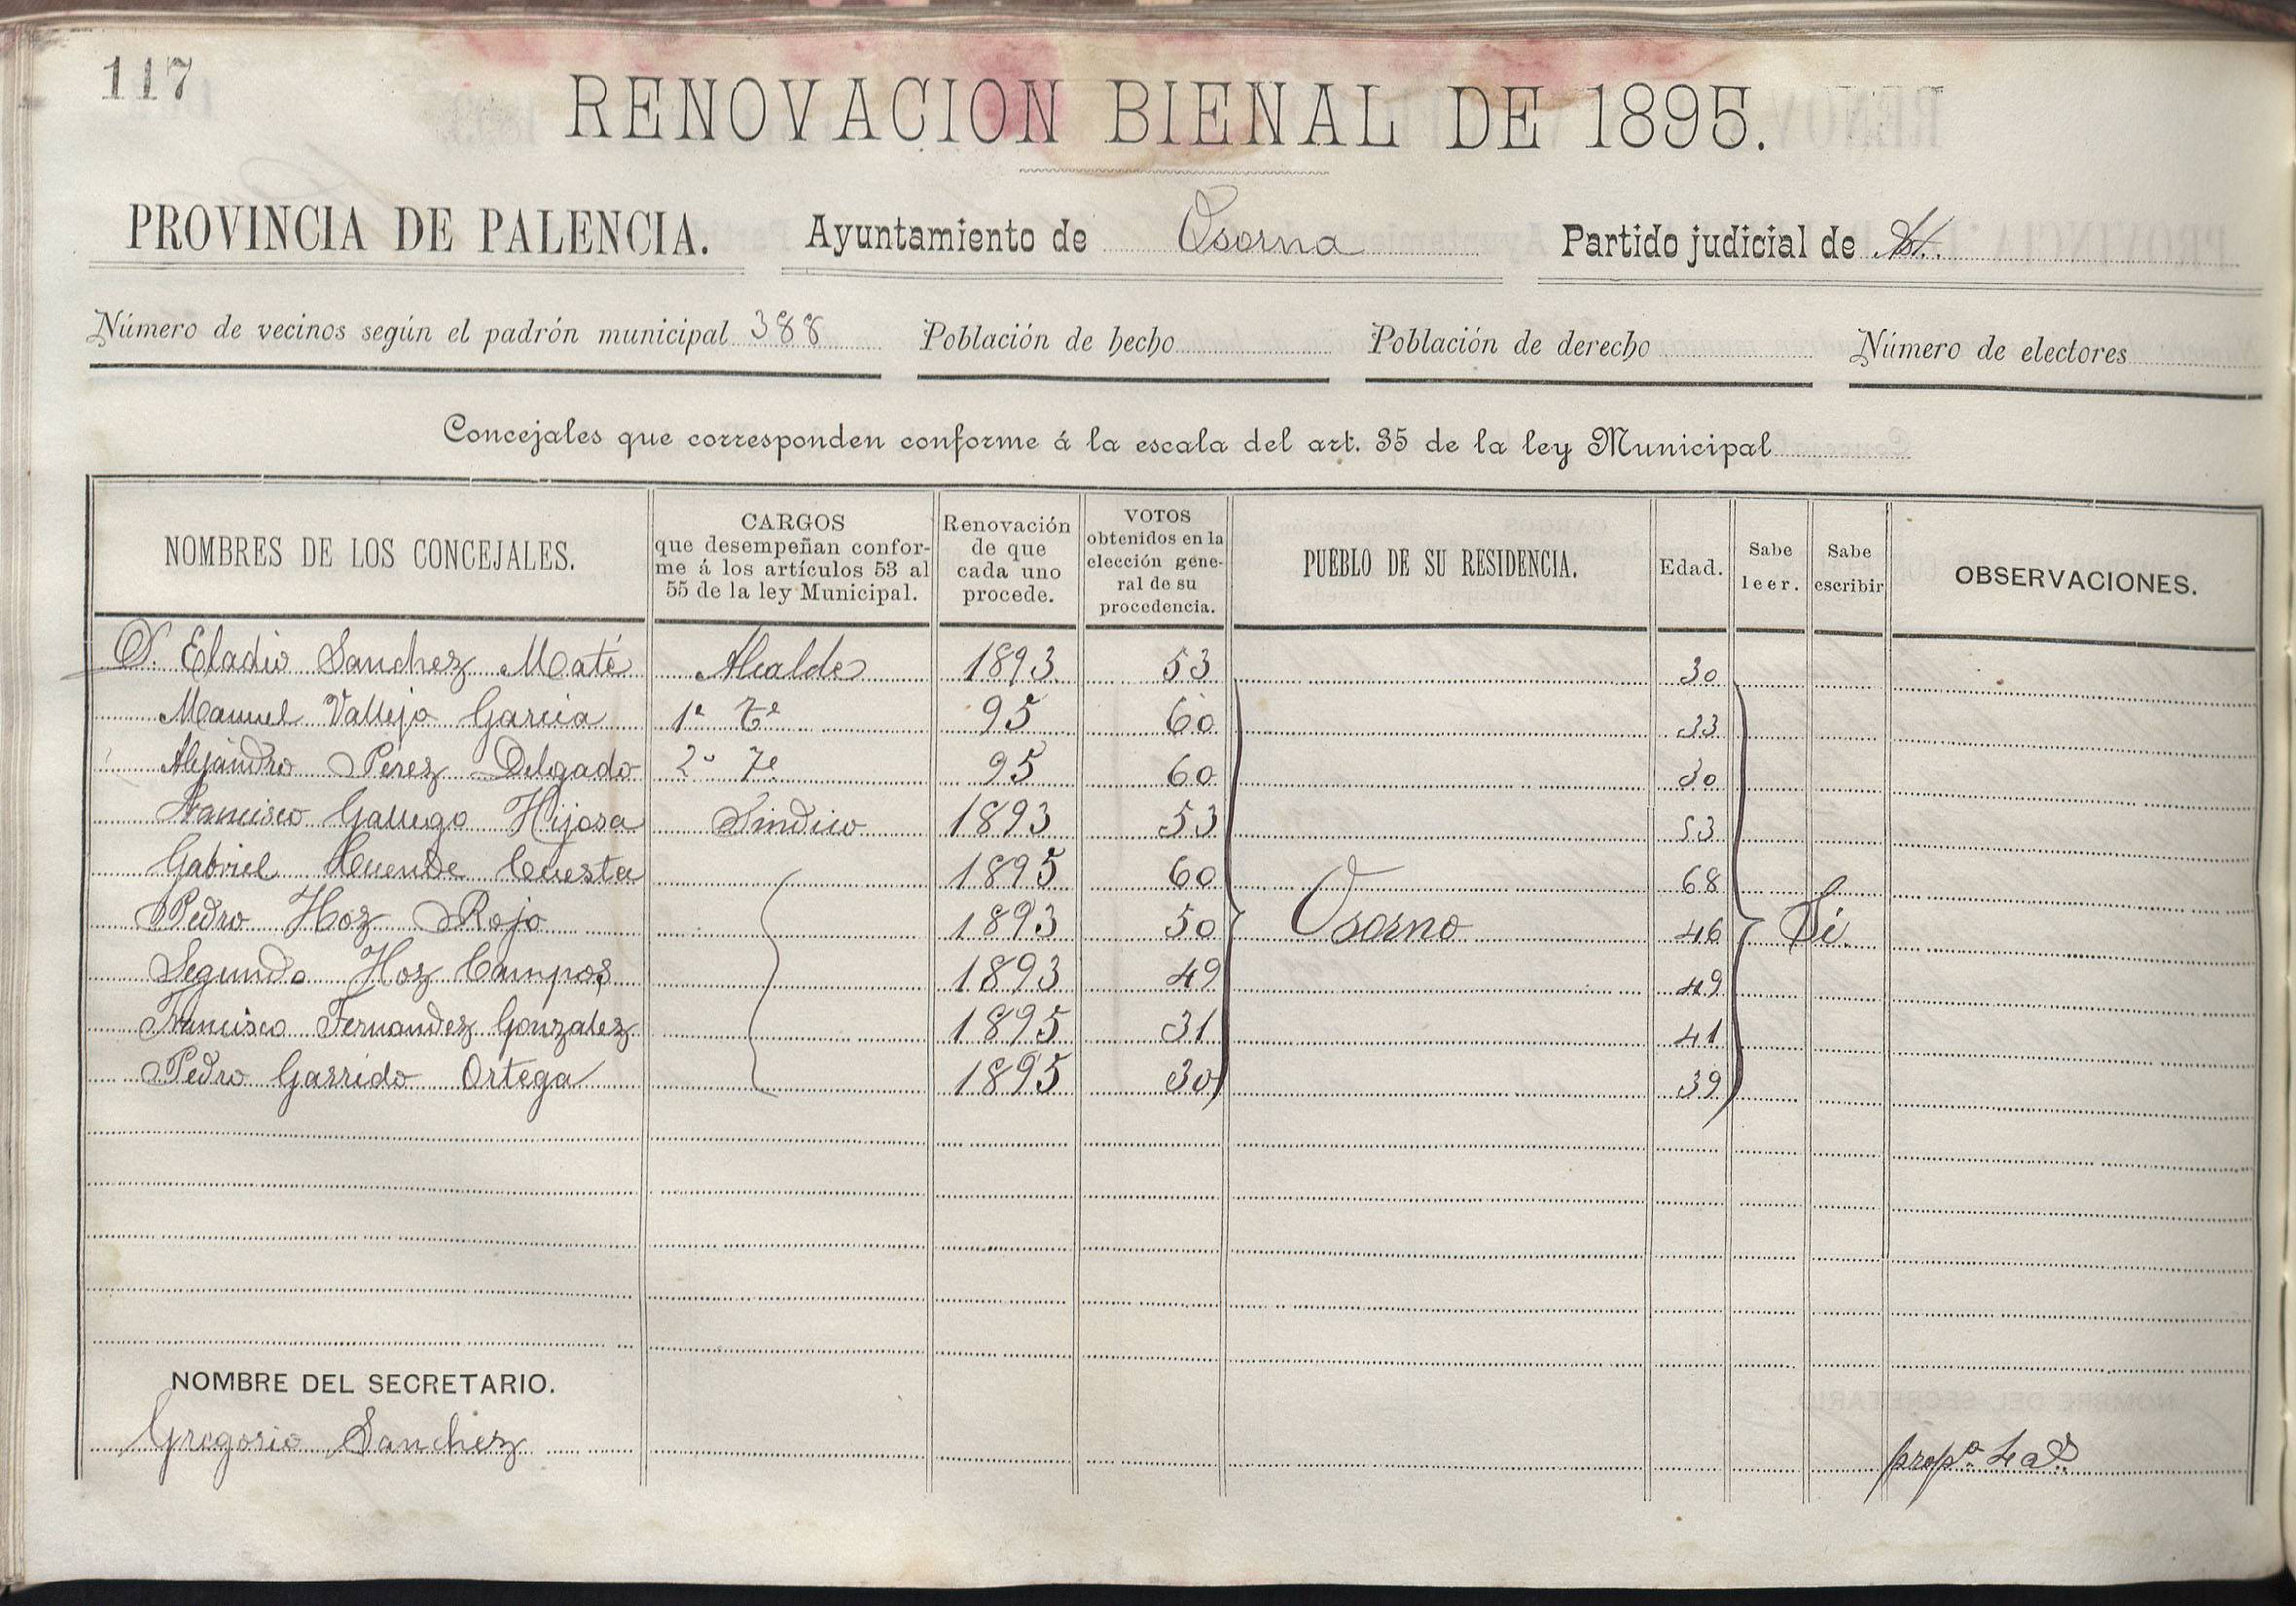 117
RENOVACION BIENAL DE 1895.
PROVINCIA DE PALENCIA. Ayuntamiento de Osorno Partido judicial de
Número de vecinos según el padrón municipal 388 Población de hecho Población de derecho Número de electores
Concejales que corresponden conforme á la escala del art. 35 de la ley Municipal
NOMBRES DE LOS CONCEJALES. CARGOS que desempeñan confor- me á los artículos 53 al 55 de la ley Municipal. Renovación de que cada uno procede. VOTOS obtenidos en la elección gene- ral de su procedencia. PUEBLO DE SU RESIDENCIA. Edad. Sabe leer. Sabe escribir OBSERVACIONES.
D. Eladio Sanchez Maté Alcalde 1893 53 30
Manuel Vallejo Garcia 1º Te 95 60 33
Alejandro Perez Delgado 2º Te 95 60 30
Francisco Gallego Hijosa Sindico 1893 53 53
Gabriel Cuesta 1895 60 68
Pedro Hoz Rojo 1893 50 Osorno 46 Si
Segundo Hoz Campos 1893 49 49
Francisco Fernandez Gonzalez 1895 31 41
Pedro Garrido Ortega 1895 30 39
NOMBRE DEL SECRETARIO.
Gregorio Sanchez